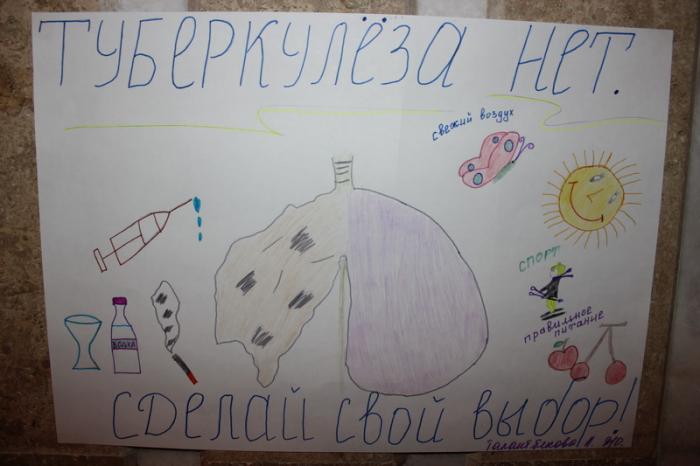 ТУБЕРКУЛЁЗА НЕТ.
свежий воздух
спорт
правильное
питание
ВОДКА
СДЕЛАЙ СВОЙ ВЫБОР!